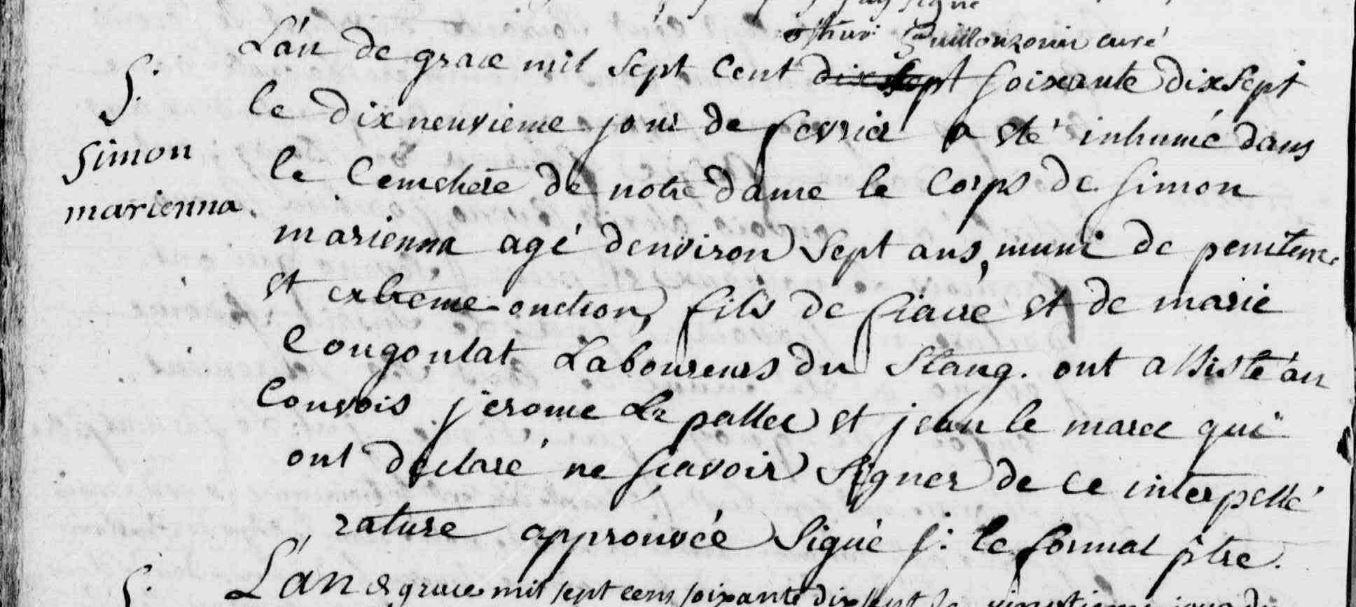 signé
Guillouzouic curé
L'an de grace mil sept cent dix sept soixante dix sept
S.
le dix neuvieme jour de fevrier a eté inhumé dans
Simon
le Cemetiere de notre dame le Corps de Simon
marienna.
marienna agé d'environ sept ans, muni de penitence
et extreme-onction, fils de fiacre et de marie
Congoulat Laboureurs du Stang. ont assisté au
Convois jerome Le pallec et jean le marec qui
ont declaré ne scavoir signer de ce interpellé
rature approuvée Signé j: le formal ptre.
S.
L'an de grace mil sept cens soixante dix sept le vingtieme jour de